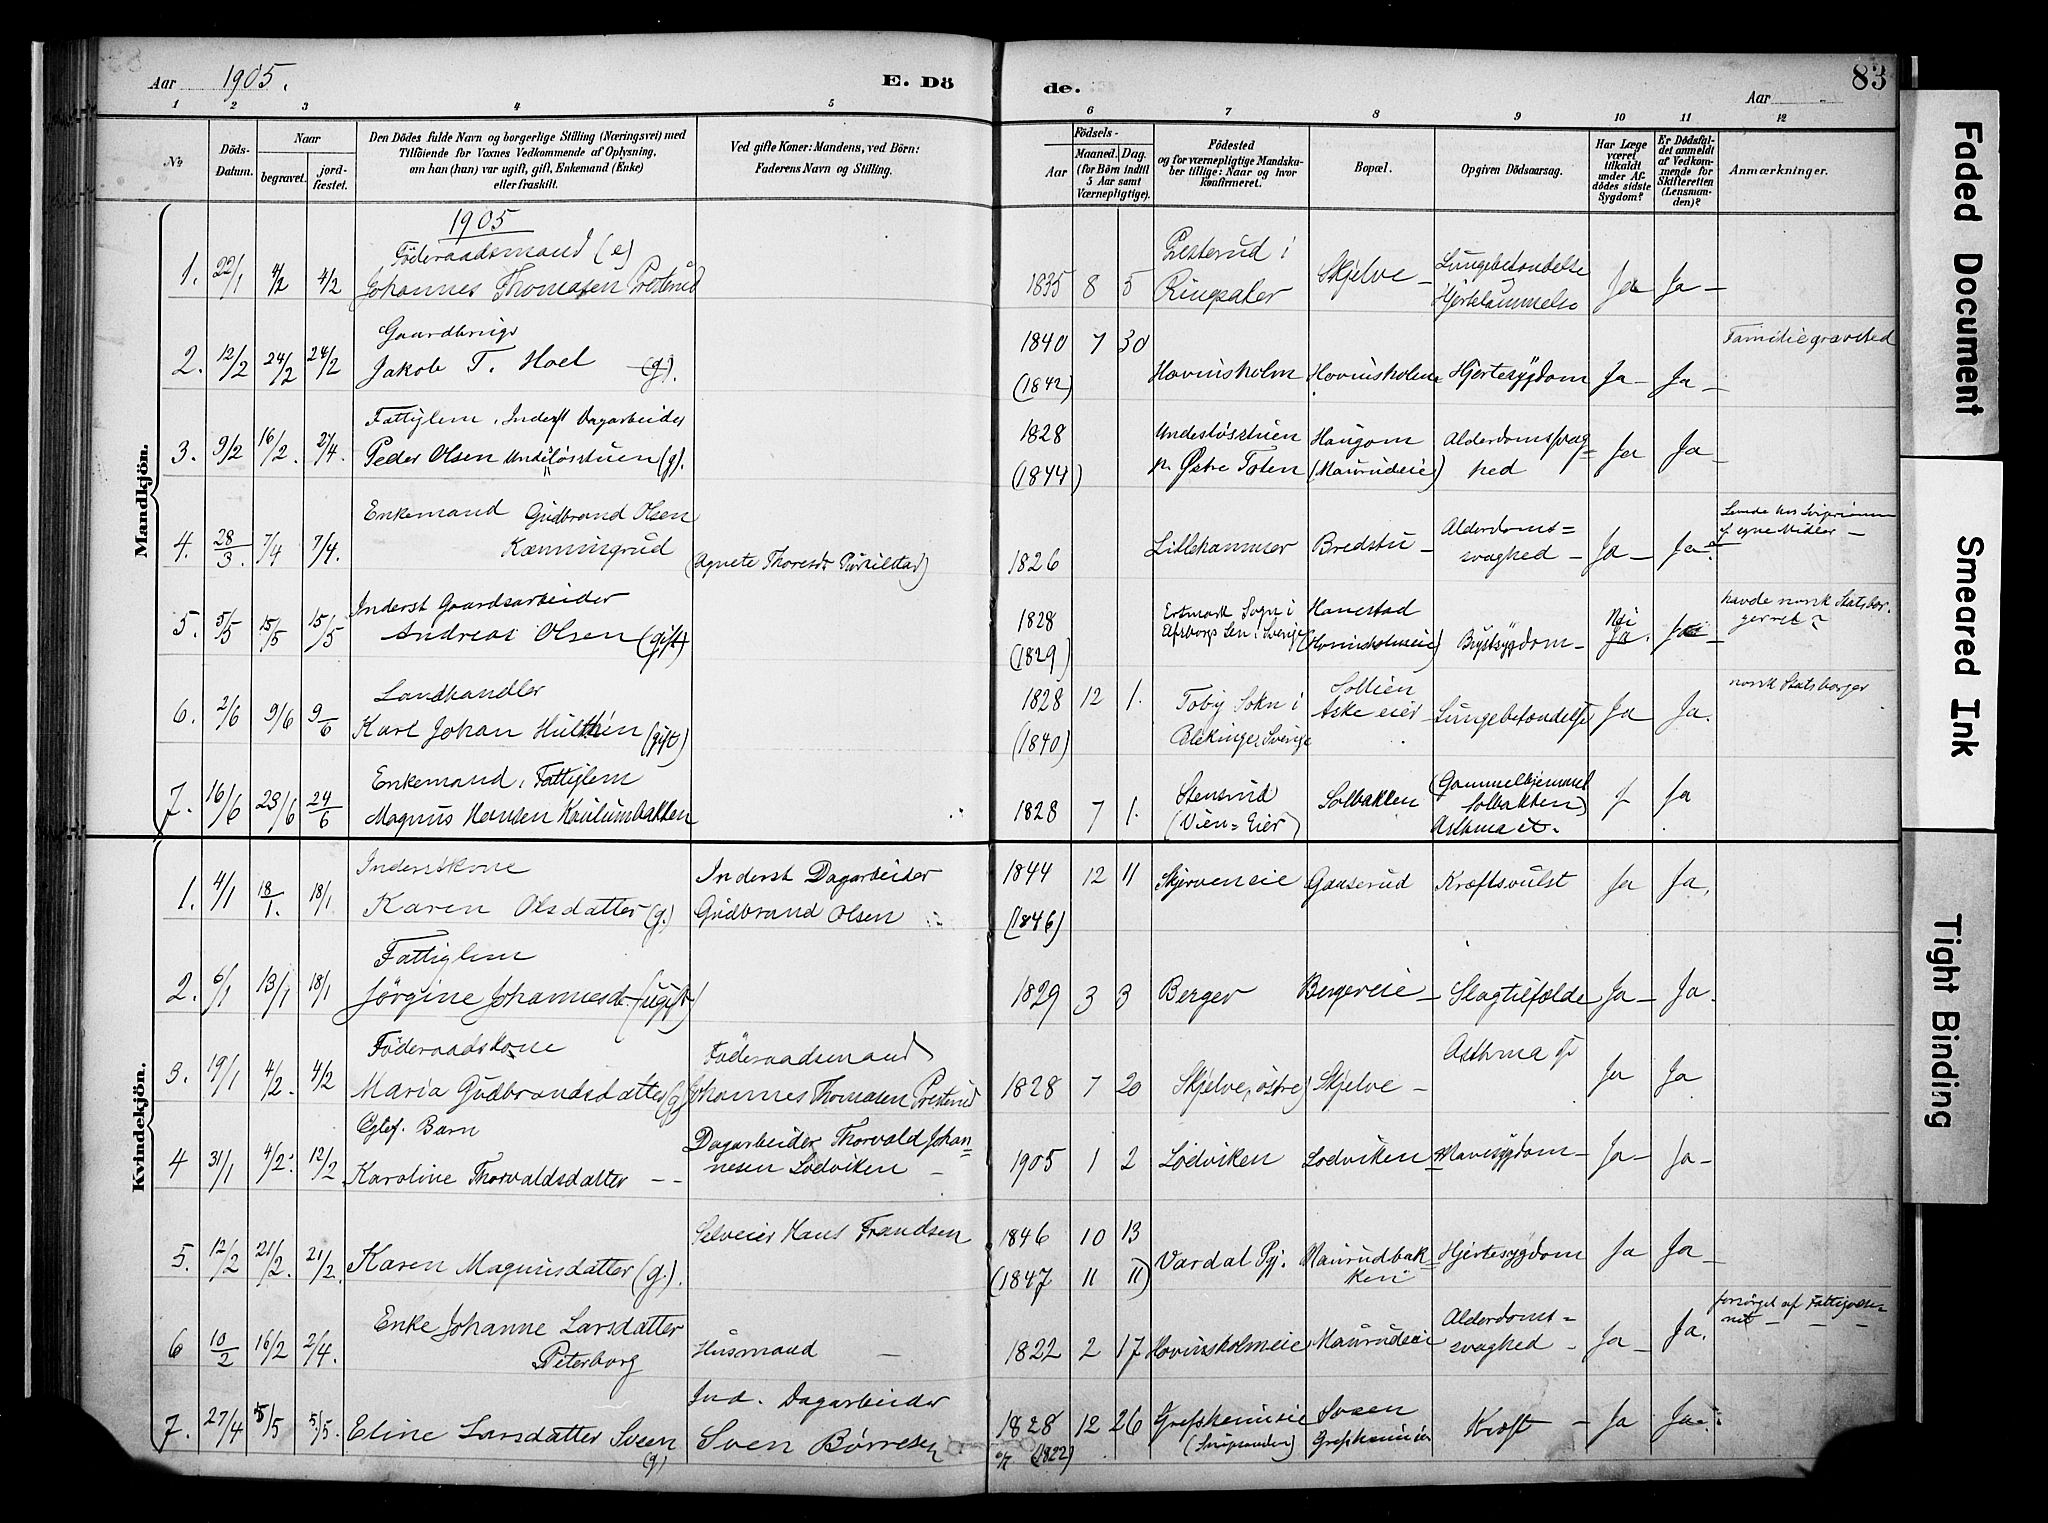 Aar 1905.
E. Dö
de.
Aar
83
1 2 3 4 5 6 7 8 9 10 11 12
No
Döds-
Datum.
Naar
begravet.
jord-
fæstet.
Den Dödes fulde Navn og borgerlige Stilling (Næringsvei) med
Tilföiende for Voxnes Vedkommende af Oplysning,
om han (hun) var ugift, gift, Enkemand (Enke)
eller fraskilt.
Ved gifte Koner: Mandens, ved Börn:
Faderens Navn og Stilling.
Födsels-
Aar
Maaned. Dag.
(for Börn indtil
5 Aar samt
Værnepligtige).
Födested
og for værnepligtige Mandska-
ber tillige: Naar og hvor
konfirmeret.
Bopæl.
Opgiven Dödsaarsag.
Har Læge
været
tilkaldt
under Af-
dödes sidste
Sygdom?
Er Dödsfal-
det anmeldt
af Vedkom-
mende for
Skifteretten
(Lensman-
den)?
Anmærkninger.
Mandkjön.
1905
Föderaadsmand (e)
1. 22/1 4/2 4/2 Johannes Thomasen Presterud 1835 8 5 Presterud i
Ringsaker Skjelve - Lungebetændelse
Hjertelammelse Ja Ja -
Gaardbruger
2. 12/2 24/2 24/2 Jakob T. Hoel (g). 1840 7 30
(1842) Hovinsholm Hovinsholm Hjertesygdom Ja - Ja - Familiegravsted
Fattiglem, Inderst Dagarbeider
3. 9/2 16/2. 2/4. Peder Olsen Undeslösstuen (g). 1828
(1844) Undeslösstuen
p. Østre Toten Haugom
(Maurudeie) Alderdomssvag=
hed Ja Ja -
Enkemand Gudbrand Olsen
4. 28/3. 7/4 7/4. Kænningrud (Agnete Thoresdr. 1826 Lillehammer Bredstu - Alderdoms=
svaghed - Ja - Ja
af egne Midler -
Inderst Gaardsarbeider
5. 5/5 15/5 15/5 Andreas Olsen (gift) 1828
(1829) Sogn i
Len i Sverige Hanestad
(Hovinsholmeie) Brystsygdom - Nei
Ja. Ja - havde norsk Statsbor-
gerret?
Landhandler
6. 2/6 9/6 9/6 Karl Johan Hulthén (gift) 1828 12 1.
(1840) Toby Sokn i
Blekinge, Sverige Sollien
Aske eier - Lungebetændelse Ja Ja. norsk Statsborger
Enkemand, Fattiglem
7. 16/6 23/6 24/6 Magnus Hansen Kaulumbakken 1828 7 1. Stensrud
(Vien=Eier) Solbakken (Gammelhjemmet
Solbakken)
Asthma et. Ja
Kvindekjön.
Inderstkone
1. 4/1 18/1. 18/1 Karen Olsdatter (g.) Inderst Dagarbeider
Gudbrand Olsen 1844 12 11
(1846) Skjerveneie Gaaserud Kræftsvulst Ja Ja.
Fattiglem
2. 6/1 13/1 18/1 Jörgine Johannesd. (ugift) 1829 3 3 Berger Bergereie - Slagtilfælde Ja - Ja.
Föderaadskone
3. 19/1 4/2. 4/2 Maria Gudbrandsdatter (g) Föderaadsmand
Johannes Thomasen Presterud 1828 7 20 Skjelve, østre Skjelve - Asthma Ja Ja
Egtef. Barn
4 31/1 4/2. 12/2 Karoline Thorvaldsdatter - - Dagarbeider Thorvald Johan=
nesen Lodviken - 1905 1 2 Lodviken Lodviken - Mavesygdom - Ja - Ja -
5. 12/2 21/2. 21/2. Karen Magnusdatter (g.). Selveier Hans Frandsen 1846 10 13
(1847 11 11) Vardal Pgj. Maurudbak=
ken Hjertesygdom Ja Ja -
Enke Johanne Larsdatter
6 10/2 16/2 2/4. Peterborg Husmand - 1822 2 17 Hovinsholmeie Maurudeie Alderdoms=
svaghed - Ja - Ja. forsørget af Fattigvæse-
net - - -
7. 27/4 5/5 5/5. Eline Larsdatter Sveen
(g) Ind. Dagarbeider
Sven Børresen 1828 12 26
(1822) Grefsheimeie Sveen
Grefsheimeie Kræft - Ja Ja
Faded Document
Smeared Ink
Tight Binding